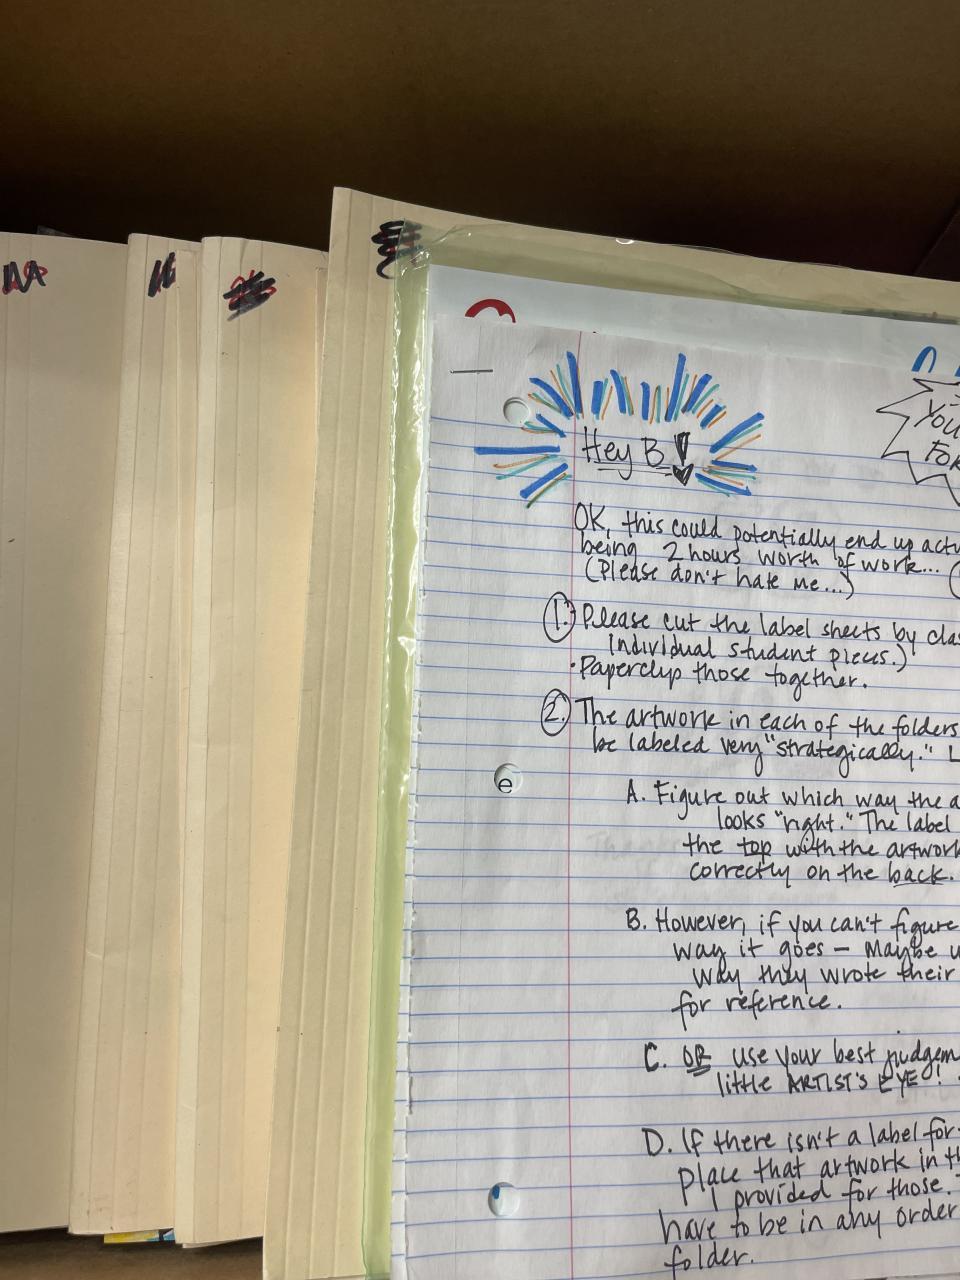 Hey B!
YOU
FOR
OK, this could potentially end up actu
being 2 hours worth of work...
(Please don't hate me...)
1. Please cut the label sheets by clas
individual student pieces.)
• Paperclip those together.
2. The artwork in each of the folders
be labeled very "strategically." L
A. Figure out which way the a
looks "right." The label
the top with the artwork
correctly on the back.
B. However, if you can't figure
way it goes – Maybe u
way they wrote their
for reference.
C. OR use your best judgem
little ARTIST'S EYE!
D. If there isn't a label for
place that artwork in th
I provided for those.
have to be in any order
folder.
e